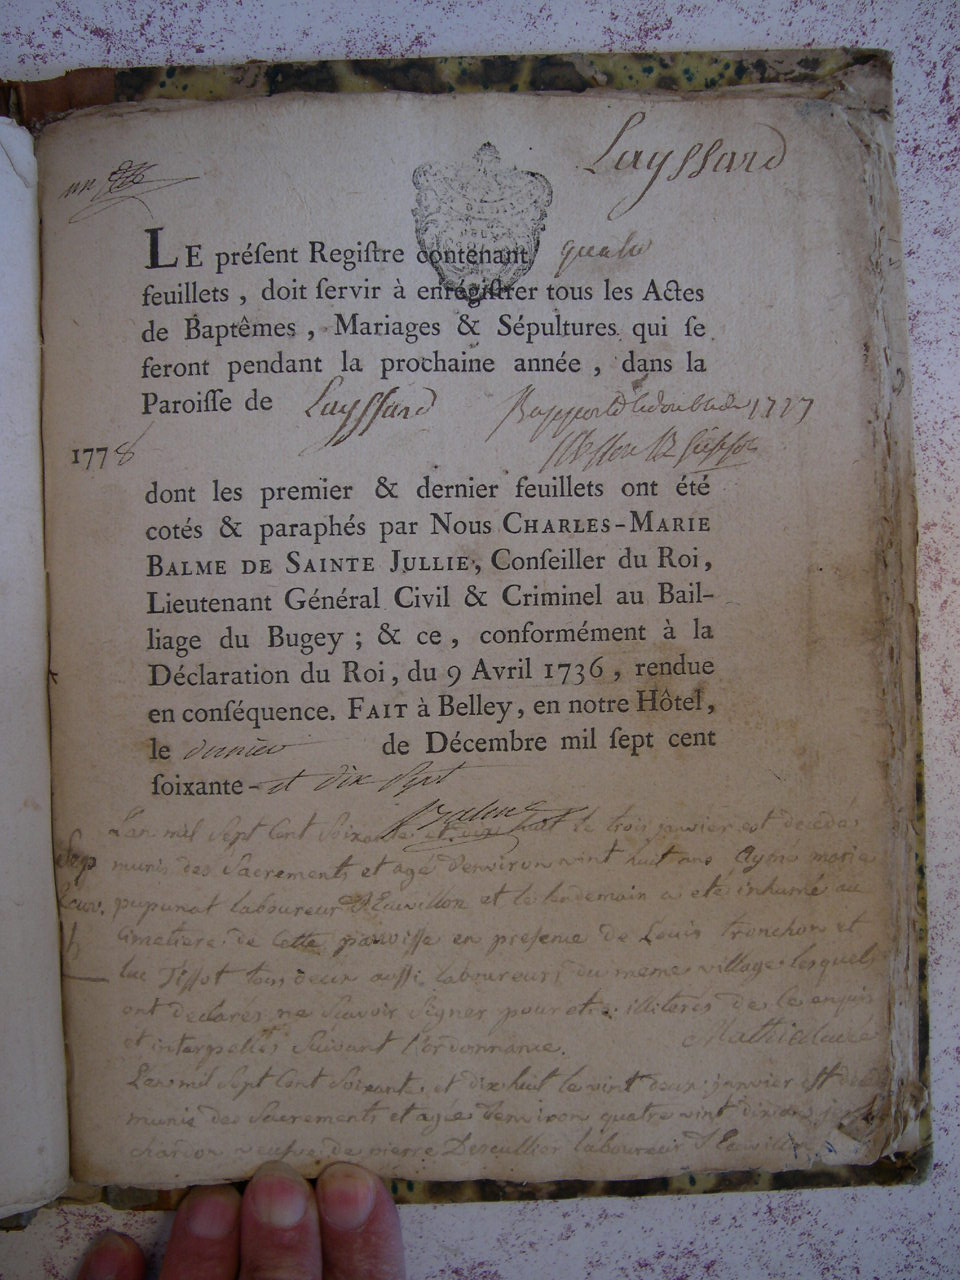 Layssard
un
LE préſent Regiſtre contenant quatre
feuillets, doit ſervir à enrégiſtrer tous les Actes
de Baptêmes, Mariages & Sépultures qui ſe
feront pendant la prochaine année, dans la
Paroiſſe de Layssard 1777
1778
dont les premier & dernier feuillets ont été
cotés & paraphés par Nous CHARLES-MARIE
BALME DE SAINTE JULLIE, Conſeiller du Roi,
Lieutenant Général Civil & Criminel au Bail-
liage du Bugey; & ce, conformément à la
Déclaration du Roi, du 9 Avril 1736, rendue
en conſéquence. FAIT à Belley, en notre Hôtel,
le dernier de Décembre mil ſept cent
ſoixante-et dix sept
Balme
L'an mil sept cent soixante et dix huit le trois janvier est décédé
munis des sacrements et agé d'environ vint huit ans Aymé marie
pupunat laboureur et le lendemain a eté inhumé au
cimetiere de cette parroisse en presence de Louis tronchon et
luc Tissot tous deux aussi laboureurs du meme village lesquels
ont declarés ne scavoir signer pour etre illiterés de ce enquis
et interpellés suivant l'ordonnance.
L'an mil sept cent soixante et dix huit le vint deux janvier est
munie des sacrements et agée d'environ quatre vint dix ans
veufve de pierre laboureur